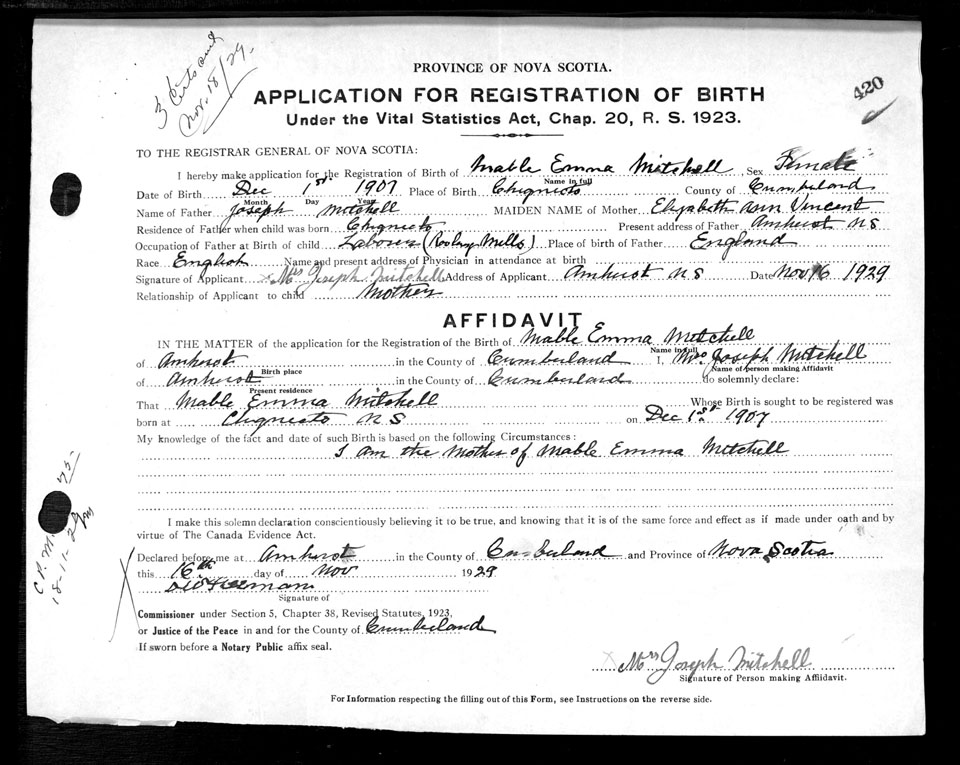 3 Certs
Nov. 18/29.
420
PROVINCE OF NOVA SCOTIA.
APPLICATION FOR REGISTRATION OF BIRTH
Under the Vital Statistics Act, Chap. 20, R. S. 1923.
TO THE REGISTRAR GENERAL OF NOVA SCOTIA:
I hereby make application for the Registration of Birth of Mable Emma Mitchell Sex Female
Name in full
Date of Birth Dec 1st 1907 Place of Birth Chignecto County of Cumberland
Month Day Year
Name of Father Joseph Mitchell MAIDEN NAME of Mother Elizabeth Ann Vincent
Residence of Father when child was born Chignecto Present address of Father Amherst NS
Occupation of Father at Birth of child Laborer (Mills) Place of birth of Father England
Race English Name and present address of Physician in attendance at birth
Signature of Applicant Mrs Joseph Mitchell Address of Applicant Amherst NS Date Nov 16 1929
Relationship of Applicant to child Mother
AFFIDAVIT
IN THE MATTER of the application for the Registration of the Birth of Mable Emma Mitchell
Name in full
of Amherst in the County of Cumberland I, Mrs. Joseph Mitchell
Birth place Name of person making Affidavit
of Amherst in the County of Cumberland do solemnly declare:
Present residence
That Mable Emma Mitchell Whose Birth is sought to be registered was
born at Chignecto NS on Dec 1st 1907
My knowledge of the fact and date of such Birth is based on the following Circumstances:
I am the Mother of Mable Emma Mitchell
I make this solemn declaration conscientiously believing it to be true, and knowing that it is of the same force and effect as if made under oath and by
virtue of The Canada Evidence Act.
Declared before me at Amherst in the County of Cumberland and Province of Nova Scotia
this 16th day of Nov 1929
Signature of
Commissioner under Section 5, Chapter 38, Revised Statutes, 1923,
or Justice of the Peace in and for the County of Cumberland
If sworn before a Notary Public affix seal.
Mrs Joseph Mitchell
Signature of Person making Affidavit.
For Information respecting the filling out of this Form, see Instructions on the reverse side.
C.P.M. 75-
18-11-29